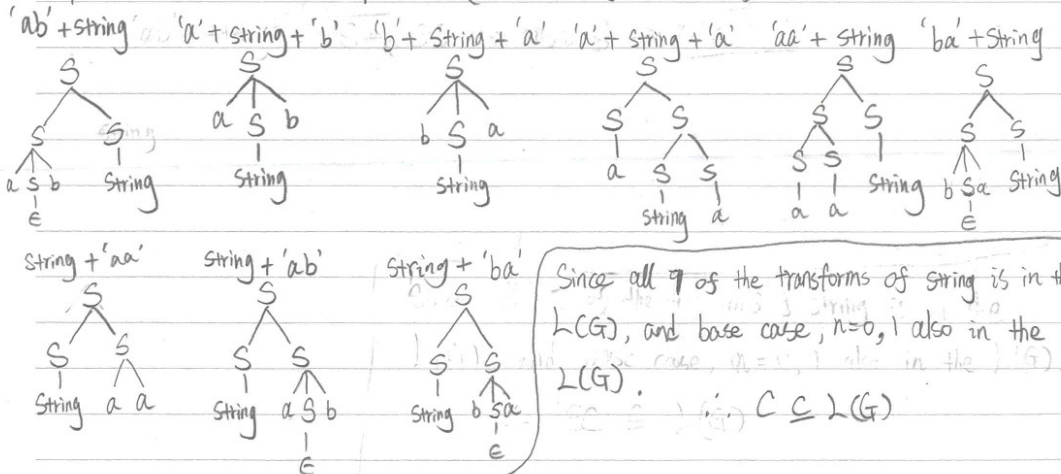 'ab' + string 'a' + string + 'b' 'b' + string + 'a' 'a' + string + 'a' 'aa' + string 'ba' + String
S S S S S S
S S a S b b S a S S S S S S
a S b String String String a S S S S String b S a String
ε string a a a ε
string + 'aa' string + 'ab' string + 'ba'
S S S
S S S S S S
String a a String a S b String b S a
ε ε
Since all 9 of the transforms of string is in th
L(G), and base case, n=0, 1 also in the
L(G).
∴ C ⊆ L(G)